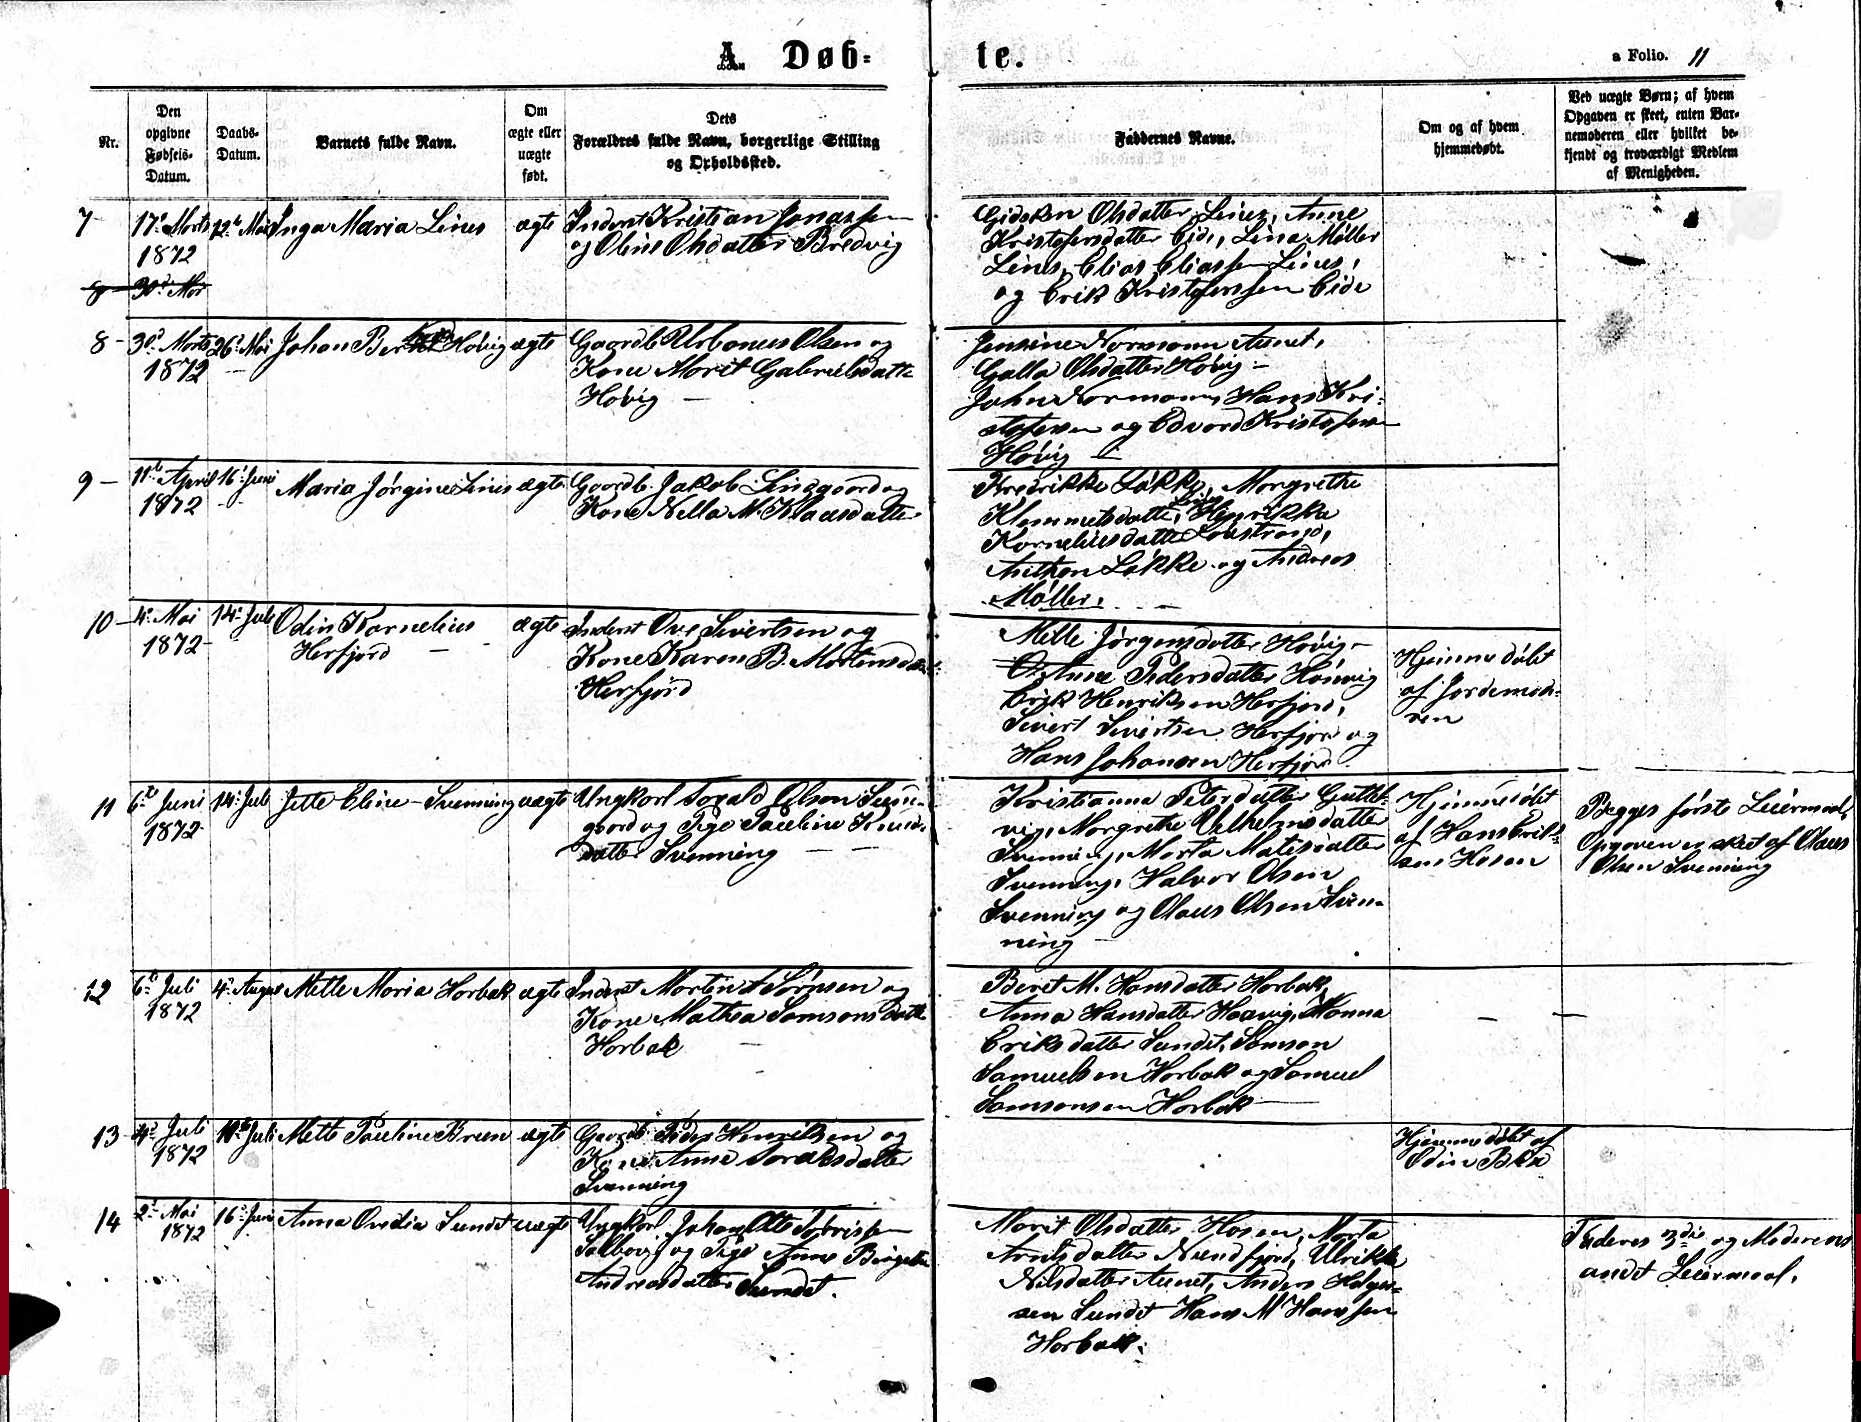 A. Døb=
te.
a Folio. 11
Nr.
Den
opgivne
Fødsels-
Datum.
Daabs-
Datum.
Barnets fulde Navn.
Om
ægte eller
uægte
født.
Dets
Forældres fulde Navn, borgerlige Stilling
og Opholdssted.
Faddernes Navne.
Om og af hvem
hjemmedøbt.
Ved uægte Børn; af hvem
Opgaven er skeet, enten Bar-
nemoderen eller hvilket be-
kjendt og troværdigt Medlem
af Menigheden.
7
17de Marts
1872
12te Mai
Inga Maria Lines
ægte
Inderst Kristian Jonassen
og Oline Olsdatter Bredvig
Gidsken Olsdatter Lines, Anne
Kristofersdatter Eide, Lina Møller
Lines, Elias Eliassen Lines,
og Erik Kristofersen Eide
8 30te Mar
8 -
30te Marts
1872
26te Mai
Johan Høvig
ægte
Gaardb. Urbanus Olsen og
Kone Marit Gabrielsdatt
Høvig
Jensine Normann Aunet,
Galla Olsdatter Høvig -
John Normann, Hans Kri-
stofersen og Edvard Kristofersen
Høvig
9 -
11te April
1872
16de Juni
Maria Jørgine Lines
ægte
Gaardb. Jakob Linesgaard og
Kone Nella M. Klausdatter
Fredrikke Løkke, Margrethe
Klemmetsdatter Lines, Henrikka
Korneliusdatter
Anthon Løkke og Andreas
Møller.
10 -
4de Mai
1872
14de Juli
Odin Kornelius
Herfjord
ægte
Inderst Ove Sivertsen og
Kone Karen B. Mortensdatt
Herfjord
Mette Jørgensdatter Høvig -
Anne Pedersdatter
Erik Henriksen Herfjord,
Sivert Sivertsen Herfjord og
Hans Johansen Herfjord
Hjemmedøbt
af Jordemod-
ren
11
6te Juni
1872
14de Juli
Jette Eline - Svenning
uægte
Ungkarl Torald Olsen Sven-
gaard og Pige Pauline Knuds-
datter Svenning
Kristianna Petersdatter Guttel-
vig, Margrethe Vilhelmsdatter
Svenning, Marta Matisdatter
Svenning, Halvor Olsen
Svenning og Olaus Olsen Sven-
ning
Hjemmedøbt
af Hans Erik-
sen Hosen
Begges første Leiermaal,
Opgaven er skeet af Olaus
Olsen Svenning
12
6te Juli
1872
4de August
Mette Maria Horbak
ægte
Inderst Morten Sørensen og
Kone Mathea Samsonsdatt
Horbak
Beret M. Hansdatter Horbak,
Anna Hansdatter Hanna
Eriksdatter Sundet, Samson
Samuelsen Horbak og Samuel
Samsonsen Horbak
13
4de Juli
1872
Juli
Mette Pauline Bruun
ægte
Gaardb. Peder Henriksen og
Kone Anne Toraldsdatter
Svenning
Hjemmedøbt af
Odin Bern
14
2de Mai
1872
16de Juni
Anna Ovidia Sundet
uægte
Ungkarl Johan Otto Tobrissen
og Pige Anne Birgitte
Andreasdatter Sundet.
Marit Olsdatter Hosen, Marta
Arntsdatter Ulrikke
Nilsdatter Aunet, Anders Holger-
sen Sundet Hans M Hanssen
Horbak.
Faderens 3die og Moderens
andet Leiermaal.